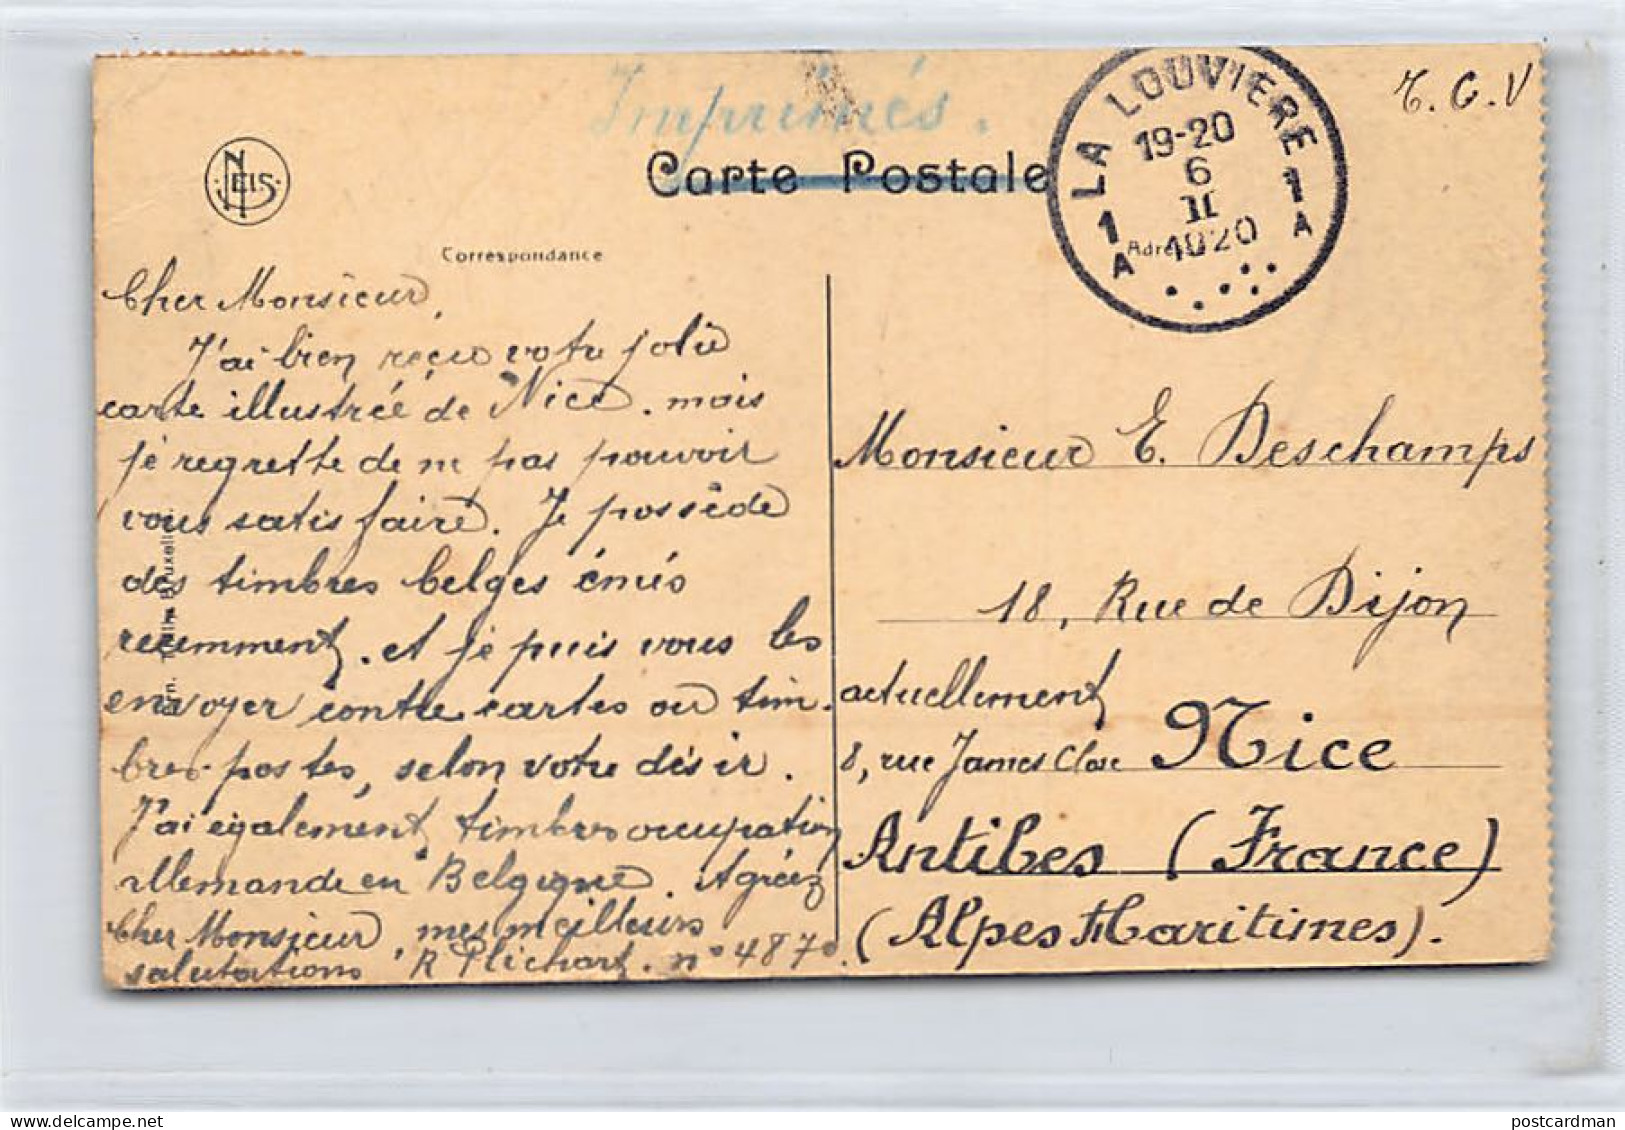 Imprimés.
T.C.V
NELS
Carte Postale
LA LOUVIERE
19-20
6
II
1920
1 A
1 A
Correspondance
Cher Monsieur,
J'ai bien reçu votre jolie
carte illustrée de Nice. mais
je regrette de ne pas pouvoir
vous satisfaire. Je possède
des timbres belges émis
recemment. et je puis vous les
envoyer contre cartes ou tim-
bres-postes, selon votre désir.
J'ai également timbres occupation
allemande en Belgique. Agréez
Cher Monsieur, mes meilleurs
salutations R Plichart. n° 4870.
Monsieur E. Deschamps
18, Rue de Dijon
actuellement
8, rue James Close Nice
Antibes (France)
(Alpes Maritimes).
postcardman